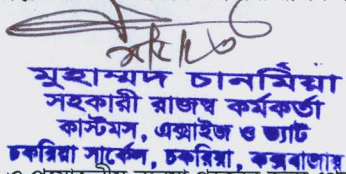 মুহাম্মদ চানমিঁয়া
সহকারী রাজস্ব কর্মকর্তা
কাস্টমস, এক্সাইজ ও ভ্যাট
চকরিয়া সার্কেল, চকরিয়া, কক্সবাজার